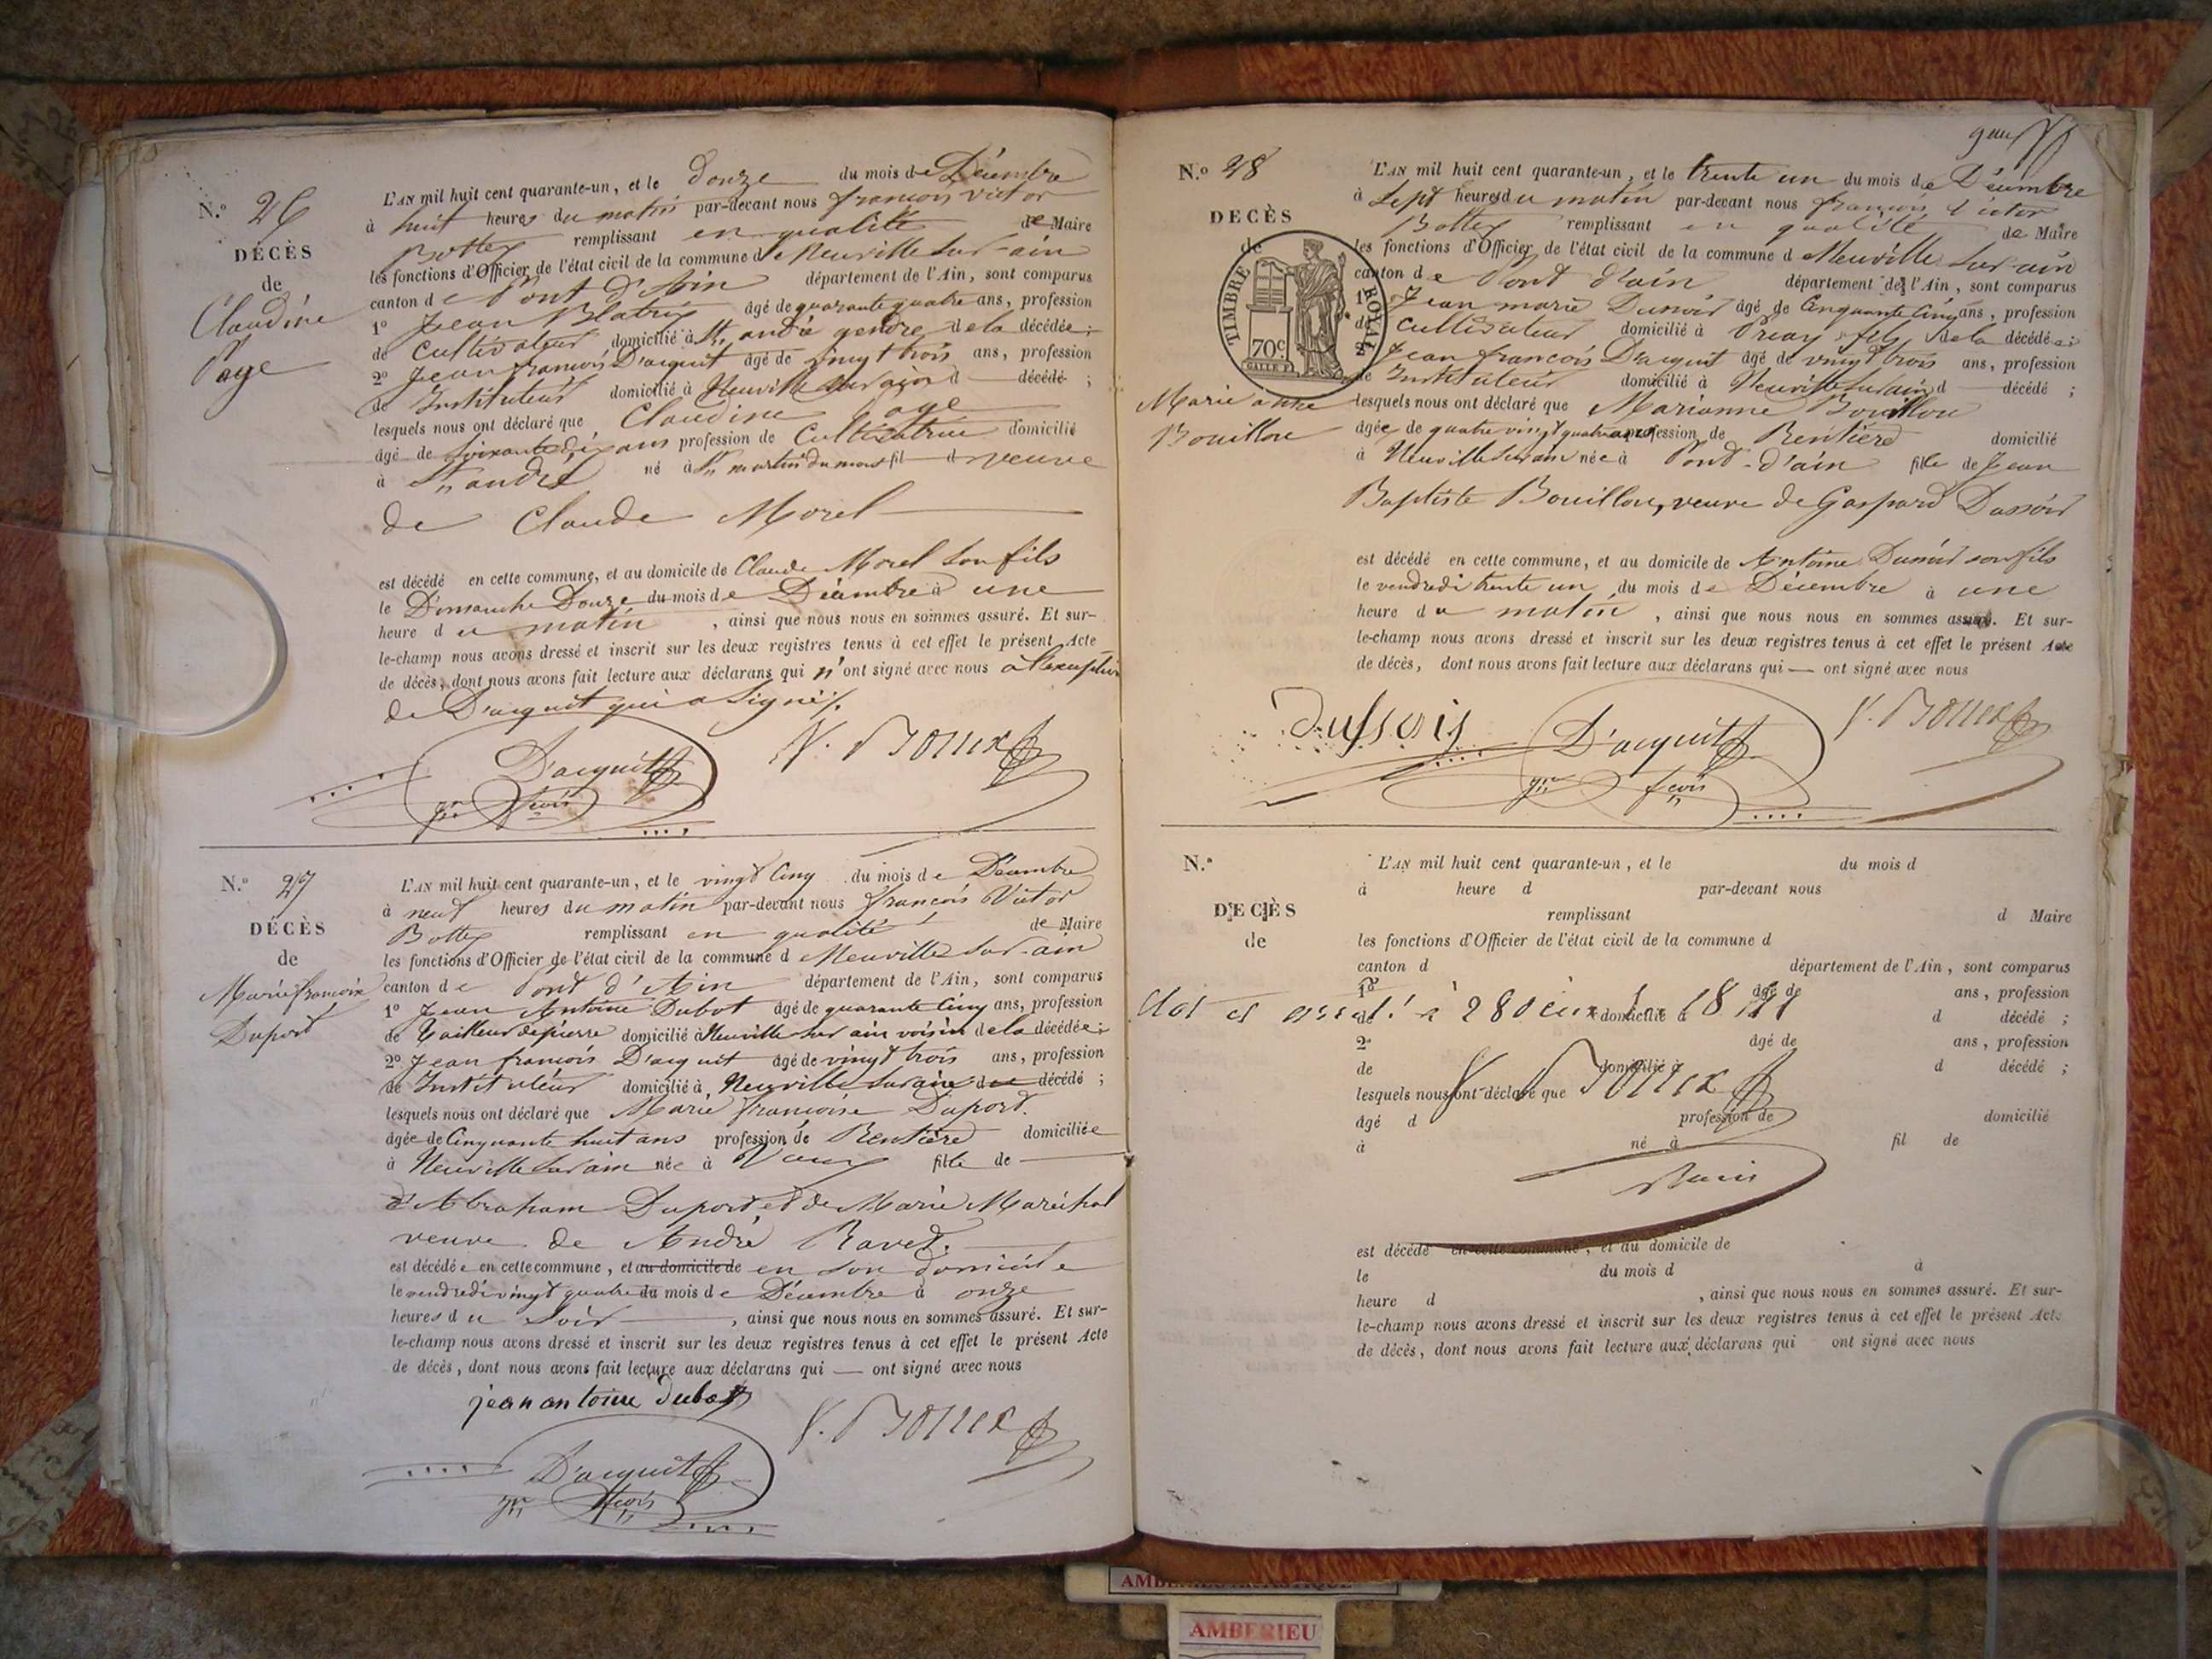 N.º 26
DÉCÈS
de
Claudine
Page
L'AN mil huit cent quarante-un, et le Douze du mois de Décembre
à huit heures du matin par-devant nous françois victor
Bottex remplissant en qualité de Maire
les fonctions d'Officier de l'état civil de la commune de Neuville sur-ain
canton de Pont d'Ain département de l'Ain, sont comparus
1º Jean Blatrix âgé de quarante quatre ans, profession
de Cultivateur domicilié à St andré gendre de la décédée;
2º Jean françois D'acquit âgé de vingt trois ans, profession
de Instituteur domicilié à Neuville sur ain d décédé ;
lesquels nous ont déclaré que Claudine Page
âgé de soixante dix ans profession de Cultivatrice domicilié
à St andré né à St martin du mont fil d veuve
de Claude Morel
est décédé en cette commune, et au domicile de Claude Morel son fils
le Dimanche Douze du mois de Décembre à une
heure du matin , ainsi que nous nous en sommes assuré. Et sur-
le-champ nous avons dressé et inscrit sur les deux registres tenus à cet effet le présent Acte
de décès, dont nous avons fait lecture aux déclarans qui n'ont signé avec nous à l'exception
de D'acquit qui a signé.
D'acquit V. Bottex
jn fcois
N.º 27
DÉCÈS
de
Marie françoise
Duport
L'AN mil huit cent quarante-un, et le vingt Cinq du mois de Décembre
à neuf heures du matin par-devant nous françois Victor
Bottex remplissant en qualité de Maire
les fonctions d'Officier de l'état civil de la commune d Neuville sur-ain
canton de Pont d'Ain département de l'Ain, sont comparus
1º Jean Antoine Dubot âgé de quarante Cinq ans, profession
de Tailleur de pierre domicilié à Neuville sur ain voisin de la décédée;
2º Jean françois D'acquit âgé de vingt trois ans, profession
de Instituteur domicilié à Neuville sur ain d décédé ;
lesquels nous ont déclaré que Marie françoise Duport.
âgée de Cinquante huit ans profession de Rentière domiciliée
à Neuville sur ain née à Vaux fille de
d'Abraham Duport et de Marie Maréchal
veuve de André Ravet.
est décédée en cette commune, et au domicile de en son domicile
le vendredi vingt quatre du mois de Décembre à onze
heures du soir , ainsi que nous nous en sommes assuré. Et sur-
le-champ nous avons dressé et inscrit sur les deux registres tenus à cet effet le présent Acte
de décès, dont nous avons fait lecture aux déclarans qui — ont signé avec nous
jean antoine dubot
V. Bottex
D'acquit
jn fcois
N.º 28
DECÈS
de
TIMBRE ROYAL
70c
Marie anne
Bouillon
L'AN mil huit cent quarante-un, et le trente un du mois de Décembre
à Sept heures du matin par-devant nous françois Victor
Bottex remplissant en qualité de Maire
les fonctions d'Officier de l'état civil de la commune d Neuville sur-ain
canton de Pont d'ain département de l'Ain, sont comparus
1º Jean marie Dussoir âgé de Cinquante Cinq ans, profession
de Cultivateur domicilié à Priay fils de la décédée;
2º Jean françois D'acquit âgé de vingt trois ans, profession
de Instituteur domicilié à Neuville sur ain d décédé ;
lesquels nous ont déclaré que Marianne Bouillon
âgée de quatre vingt quatre ans profession de Rentière domicilié
à Neuville sur ain née à Pont-d'ain fille de Jean
Baptiste Bouillon, veuve de Gaspard Dussoir
est décédé en cette commune, et au domicile de Antoine Dussoir son fils
le vendredi trente un du mois de Décembre à une
heure du matin , ainsi que nous nous en sommes assuré. Et sur-
le-champ nous avons dressé et inscrit sur les deux registres tenus à cet effet le présent Acte
de décès, dont nous avons fait lecture aux déclarans qui — ont signé avec nous
dussois D'acquit V. Bottex
jn fcois
N.º
DECÈS
de
L'AN mil huit cent quarante-un, et le du mois d
à heure d par-devant nous
remplissant d Maire
les fonctions d'Officier de l'état civil de la commune d
canton d département de l'Ain, sont comparus
1º âgé de ans, profession
Clos et arrêté
de domicilié à d décédé ;
2º âgé de ans, profession
de domicilié à d décédé ;
V. Bottex
lesquels nous ont déclaré que
âgé d profession de domicilié
à né à fil de
Maire
est décédé en cette commune, et au domicile de
le du mois d à
heure d , ainsi que nous nous en sommes assuré. Et sur-
le-champ nous avons dressé et inscrit sur les deux registres tenus à cet effet le présent Acte
de décès, dont nous avons fait lecture aux déclarans qui ont signé avec nous
AMBERIEU